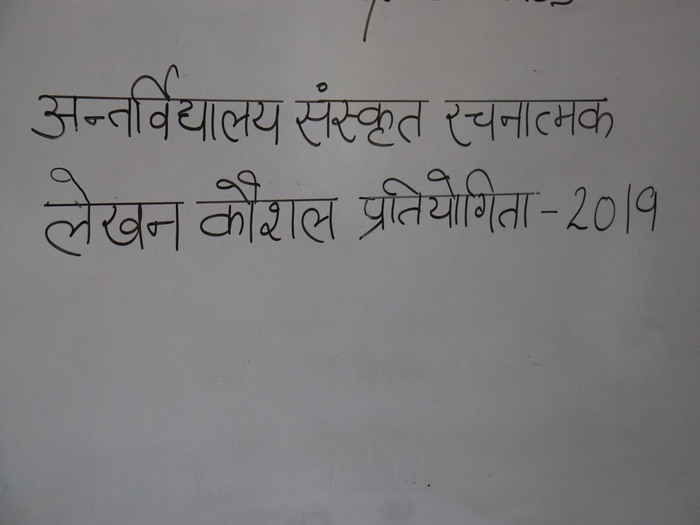 अन्तर्विद्यालय संस्कृत रचनात्मक
लेखन कौशल प्रतियोगिता - 2019